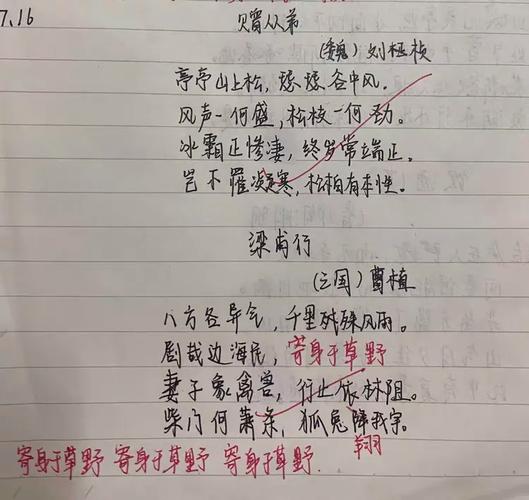 7.16
赠从弟
(魏) 刘桢桢
亭亭山上松，瑟瑟谷中风。
风声一何盛，松枝一何劲。
冰霜正惨凄，终岁常端正。
岂不罹凝寒，松柏有本性。
梁甫行
(三国) 曹植
八方各异气，千里殊风雨。
剧哉边海民，寄身于草野
妻子象禽兽，行止依林阻。
柴门何萧条，狐兔翔我宇。
翔
寄身于草野 寄身于草野 寄身于草野